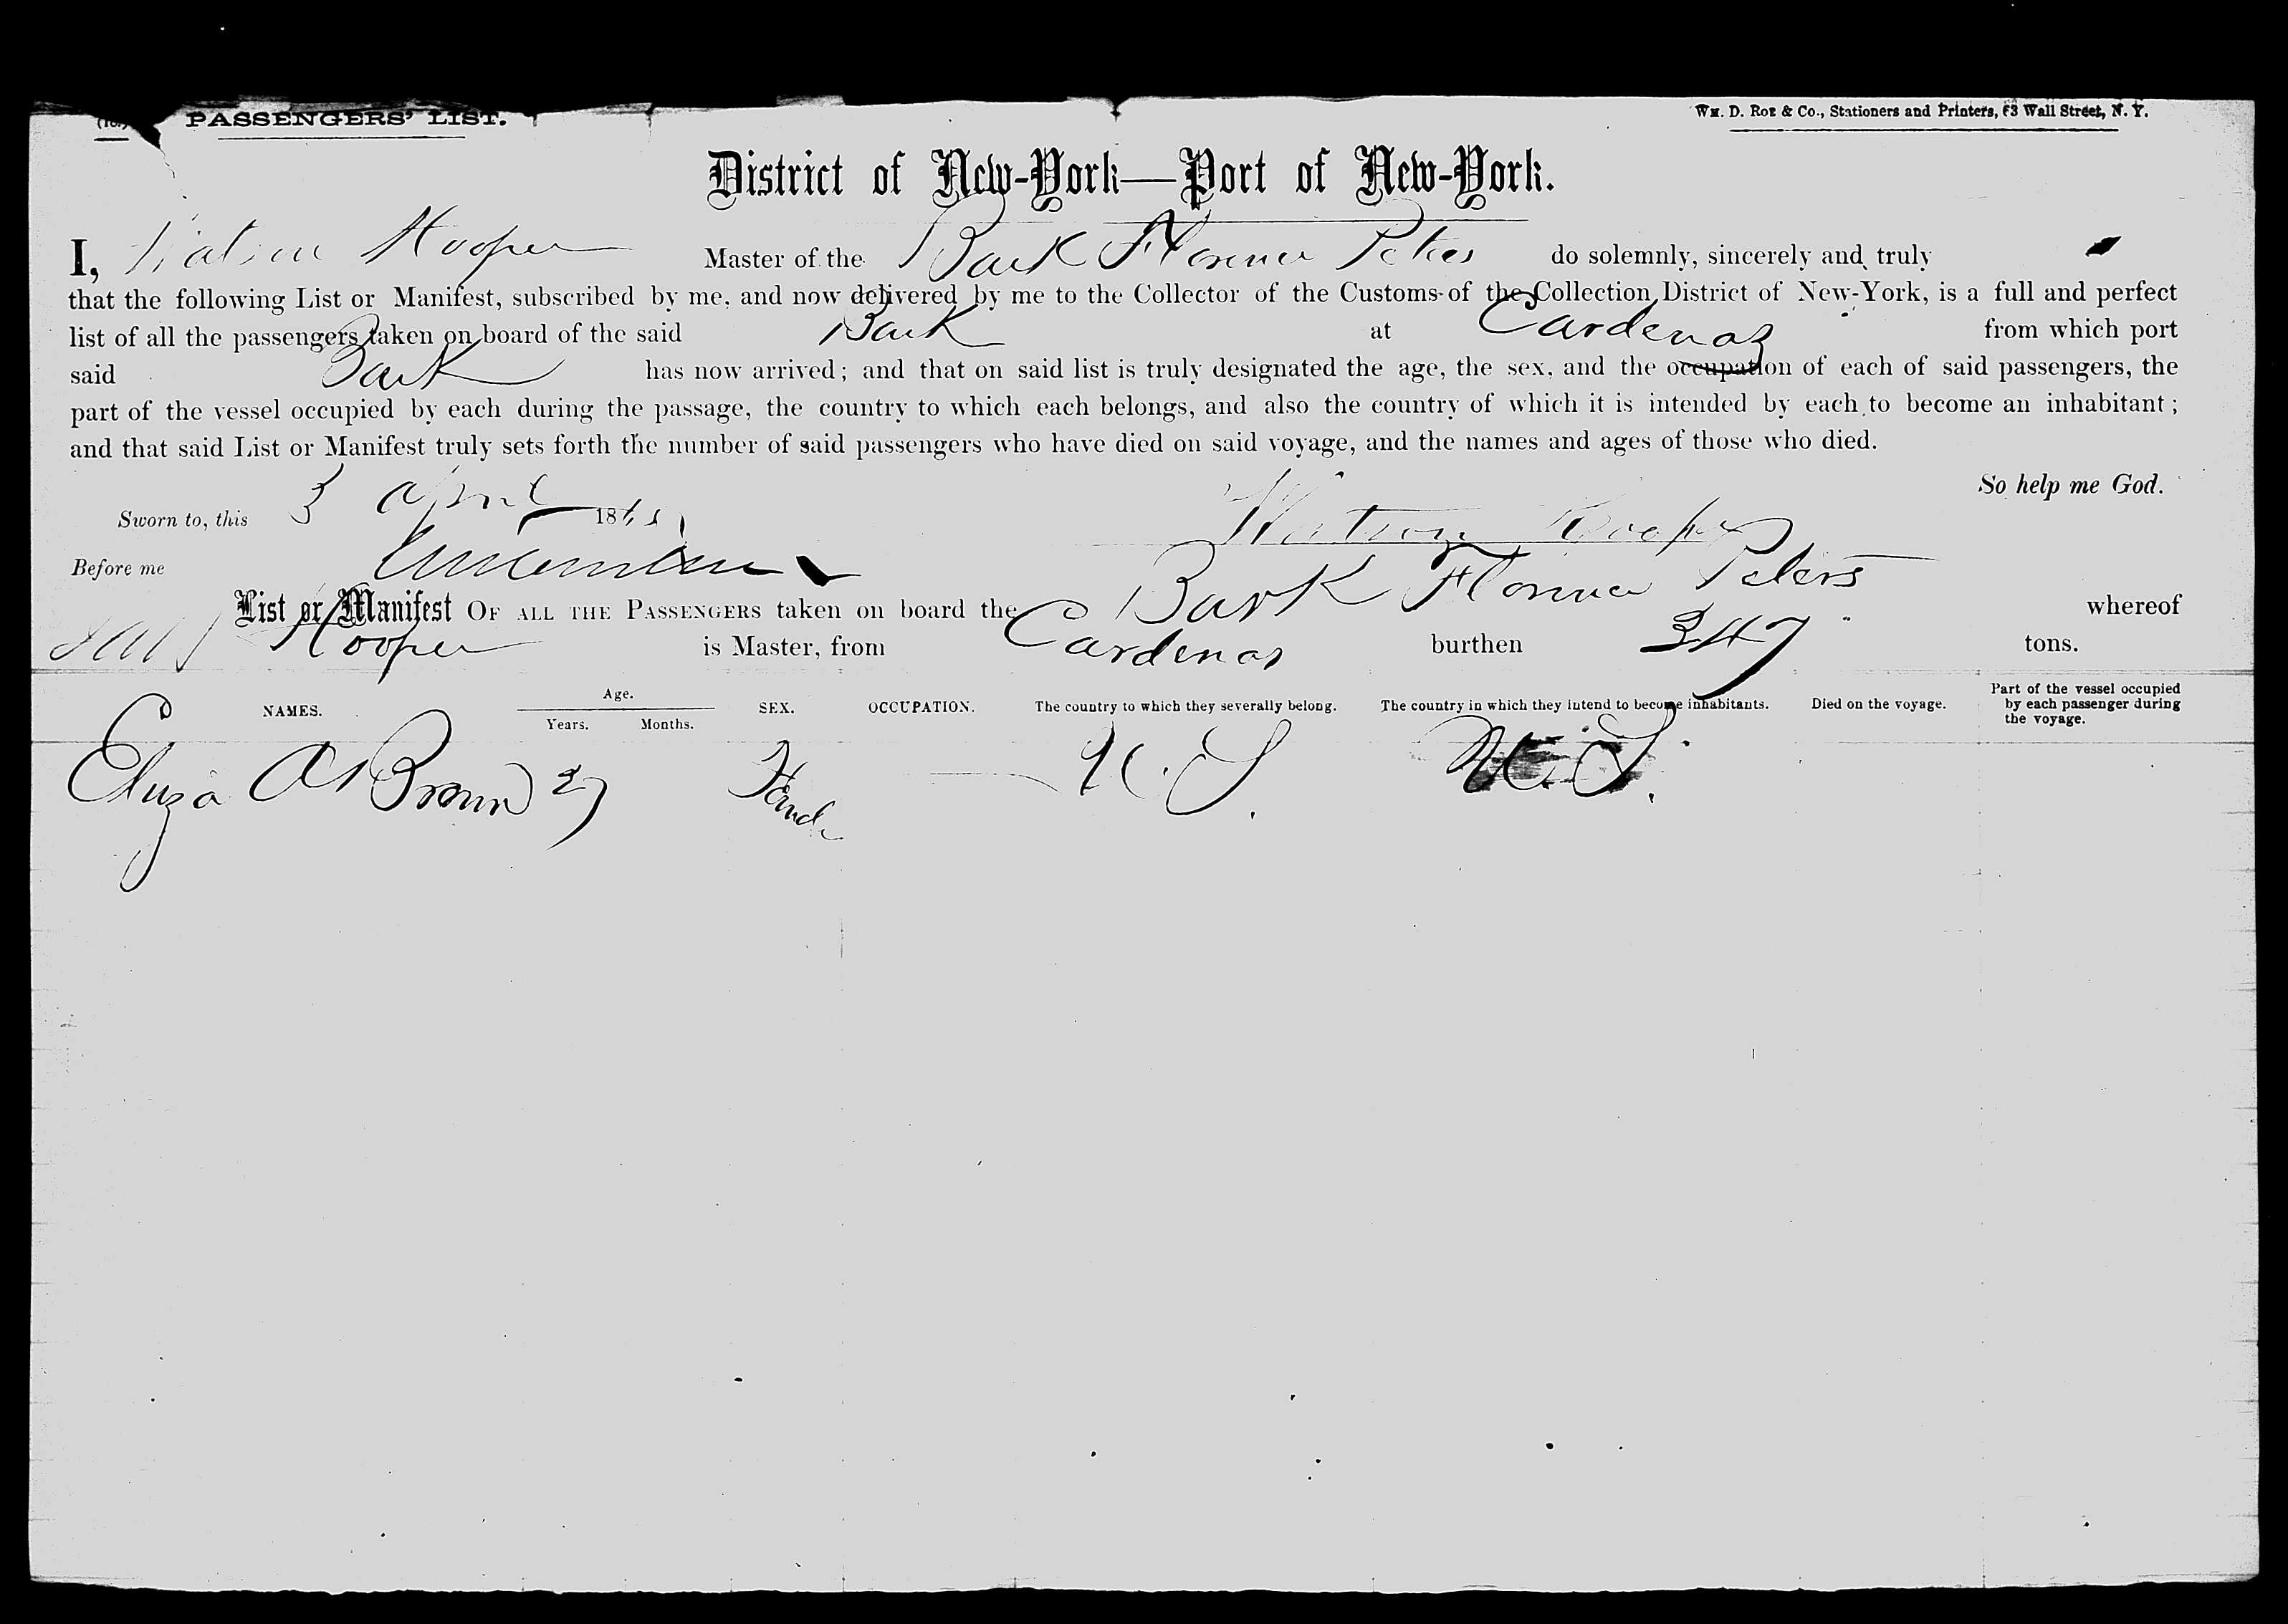 PASSENGERS' LIST.
Wm. D. Roe & Co., Stationers and Printers, 63 Wall Street, N. Y.
District of New-York—Port of New-York.
I, Watson Hooper Master of the Bark Florence Peters do solemnly, sincerely and truly
that the following List or Manifest, subscribed by me, and now delivered by me to the Collector of the Customs of the Collection District of New-York, is a full and perfect
list of all the passengers taken on board of the said Bark at Cardenas from which port
said Bark has now arrived; and that on said list is truly designated the age, the sex, and the occupation of each of said passengers, the
part of the vessel occupied by each during the passage, the country to which each belongs, and also the country of which it is intended by each to become an inhabitant;
and that said List or Manifest truly sets forth the number of said passengers who have died on said voyage, and the names and ages of those who died.
So help me God.
Sworn to, this 3 April 18
Watson Hooper
Before me
List or Manifest OF ALL THE PASSENGERS taken on board the Bark Florence Peters whereof
Hooper is Master, from Cardenas burthen 347 tons.
NAMES. Age. Years. Months. SEX. OCCUPATION. The country to which they severally belong. The country in which they intend to become inhabitants. Died on the voyage. Part of the vessel occupied by each passenger during the voyage.
Eliza A Brown 27 Female U.S. U.S.